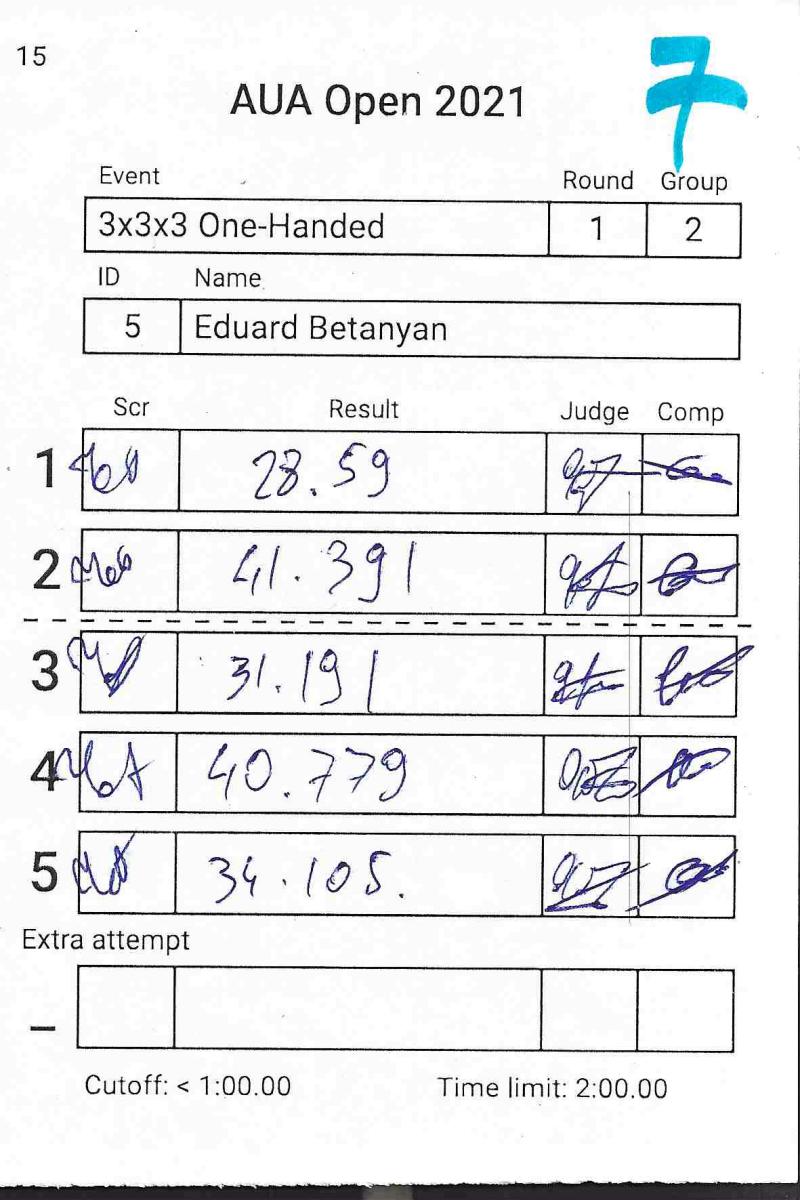 15
7
AUA Open 2021
Event Round Group
3x3x3 One-Handed 1 2
ID Name
5 Eduard Betanyan
Scr Result Judge Comp
1 28.59
2 41.391
3 31.191
4 40.779
5 34.105.
Extra attempt
_
Cutoff: < 1:00.00 Time limit: 2:00.00